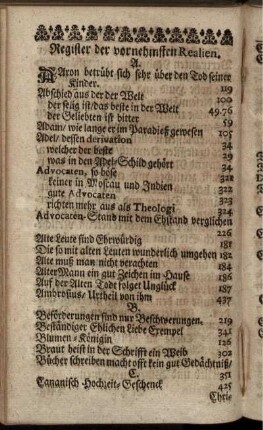 Register der vornehmsten Realien.
A.
AAron betrübt sich sehr über den Tod seiner
Kinder. 119
Abschied aus der der Welt 100
der selig ist/das beste in der Welt 49.76
der Geliebten ist bitter 59
Adam/ wie lange er im Paradieß gewesen 105
Adel/ dessen derivation 34
welcher der beste 29
was in den Adel-Schild gehört 34
Advocaten, so böse 321
keiner in Moscau und Indien 322
gute Advocaten 323
richten mehr aus als Theologi 324
Advocaten-Stand mit dem Ehstand verglichen
226
Alte Leute sind Ehrwürdig 181
Die so mit alten Leuten wunderlich umgehen 182
Alte muß man nicht verachten 184
Alter Mann ein gut Zeichen im Hause 186
Auf der Alten Tod folget Unglück 187
Ambrosius, Urtheil von ihm 437
B.
Beförderungen sind nur Beschwerungen. 219
Beständiger Ehlichen Liebe Exempel 341
Blumen-Königin 126
Braut heist in der Schrifft ein Weib 302
Bücher schreiben macht offt kein gut Gedächtniß/
351
C.
Cananisch Hochzeit-Geschenck 425
Chri-